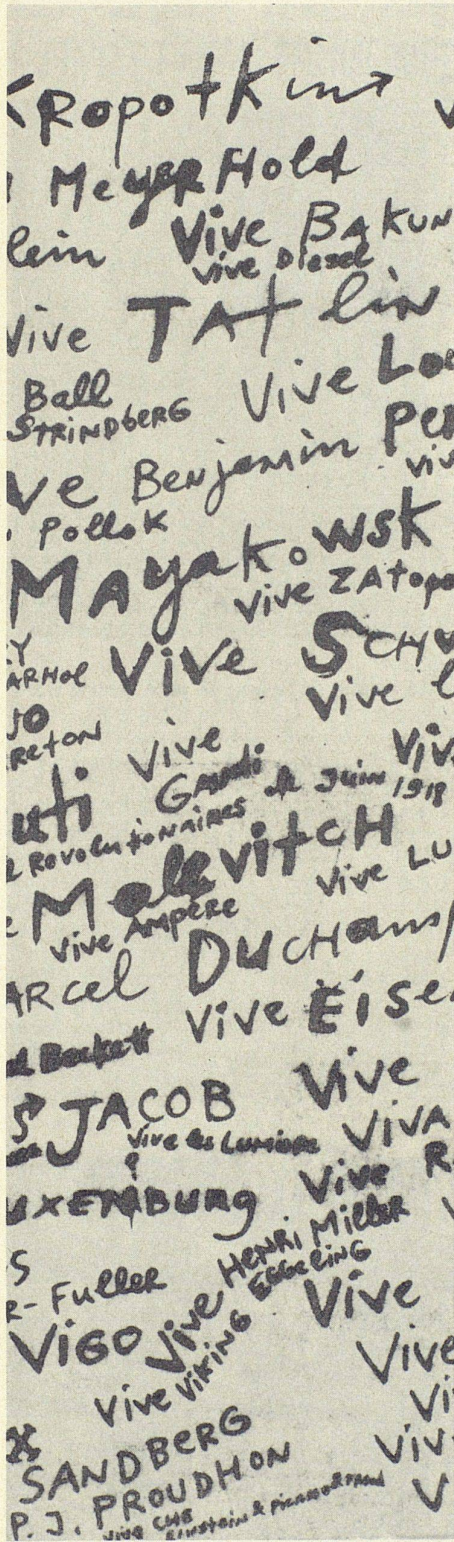 Kropotkin
MeyerHold
lein Vive BAKUN
vive Diesel
Vive TAtlin
Ball Vive Lou
STRINDbERG
ve Benjamin Per
viv
Pollok
MAyakowsk
vive ZAtope
Y
ARHol Vive SCHW
Vive
JO
RETON Vive Viv
uti Gaudi de Juin 1918
Rovolutionaires
Malevitch
vive LU
vive AMPÈRE
ARcel DUCHamp
Beckett Vive Eise
S JACOB Vive
Vive les Lumière VIVA
uxemburg Vive R
S
R-Fuller Vive HENRi Miller
EGGeliNG
VIGO Vive
Vive VikiNG Vive
SANDBERG
P. J. PROUDHON Viv
ViVe CHE
EiNstein & Picasso & FREUD